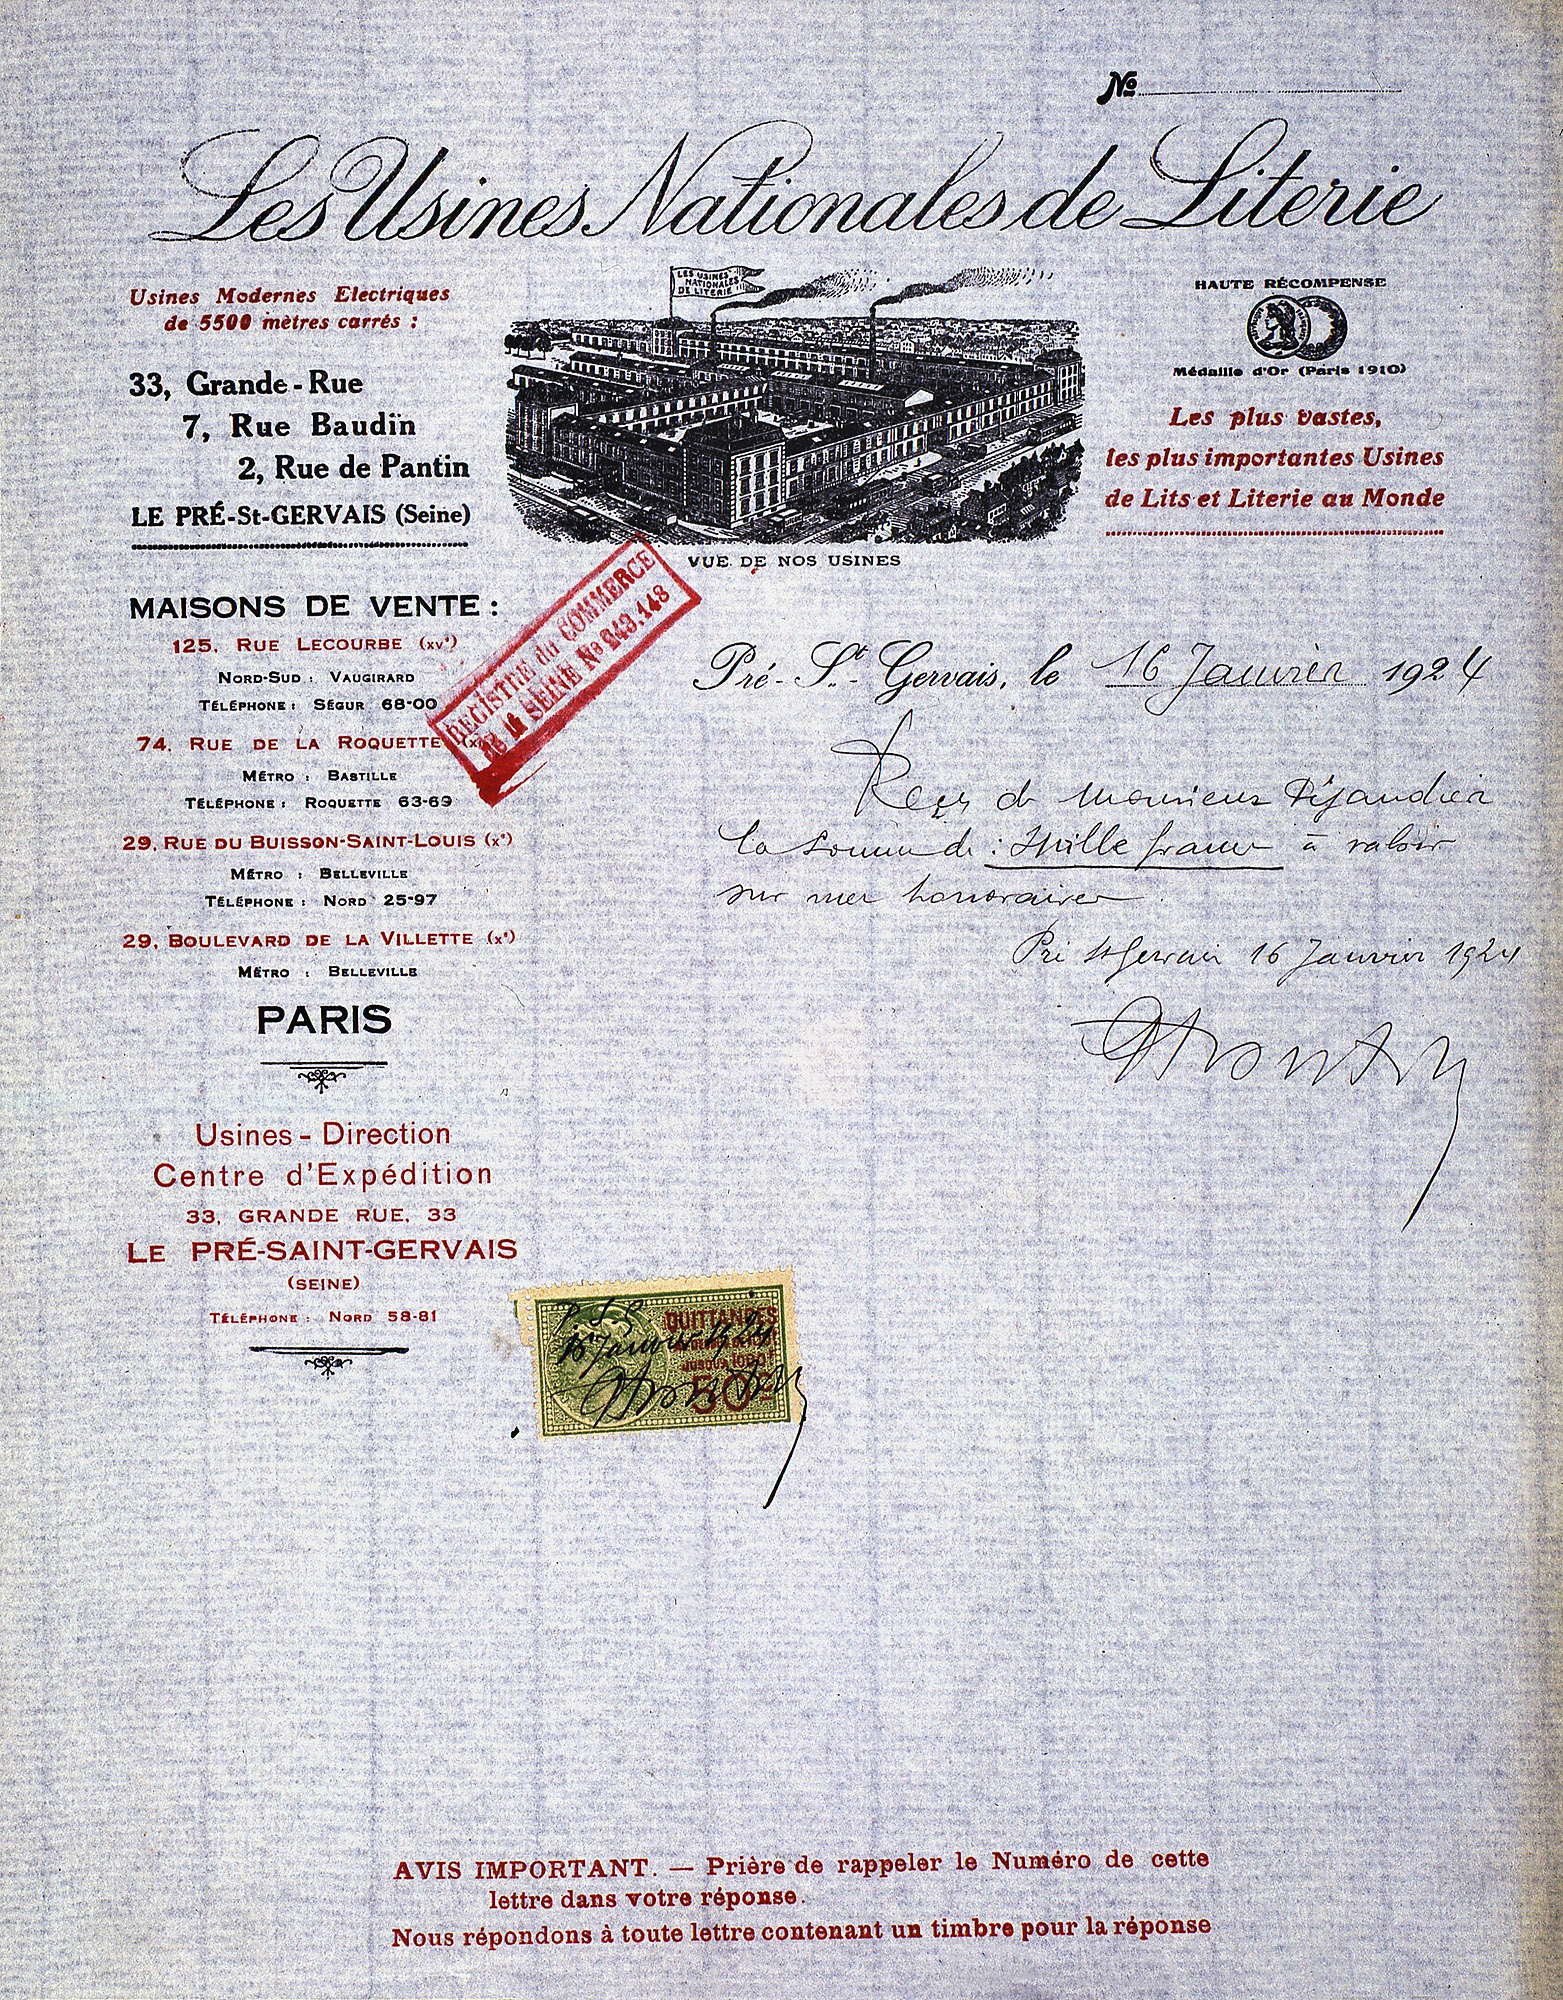 No
Les Usines Nationales de Literie
Usines Modernes Electriques
de 5500 mètres carrés :
33, Grande-Rue
7, Rue Baudin
2, Rue de Pantin
LE PRÉ-St-GERVAIS (Seine)
LES USINES
NATIONALES
DE LITERIE
VUE DE NOS USINES
HAUTE RÉCOMPENSE
Médaille d'Or (Paris 1910)
Les plus vastes,
les plus importantes Usines
de Lits et Literie au Monde
MAISONS DE VENTE :
125, RUE LECOURBE (XVe)
NORD-SUD : VAUGIRARD
TÉLÉPHONE : SÉGUR 68-00
74, RUE DE LA ROQUETTE
MÉTRO : BASTILLE
TÉLÉPHONE : ROQUETTE 63-69
29, RUE DU BUISSON-SAINT-LOUIS (Xe)
MÉTRO : BELLEVILLE
TÉLÉPHONE : NORD 25-97
29, BOULEVARD DE LA VILLETTE (Xe)
MÉTRO : BELLEVILLE
PARIS
Usines - Direction
Centre d'Expédition
33, GRANDE RUE, 33
LE PRÉ-SAINT-GERVAIS
(SEINE)
TÉLÉPHONE : NORD 58-81
REGISTRE du COMMERCE
de la SEINE No 249.148
Pré-St-Gervais, le 16 Janvier 1924
Reçu de Monsieur Déjaudier
la somme de : Mille francs à valoir
sur mes honoraires.
Pré St Gervais 16 Janvier 1924
P. S. G.
16 Janvier 1924
QUITTANCES
JUSQU'A 1000 F
50c
AVIS IMPORTANT. — Prière de rappeler le Numéro de cette
lettre dans votre réponse.
Nous répondons à toute lettre contenant un timbre pour la réponse